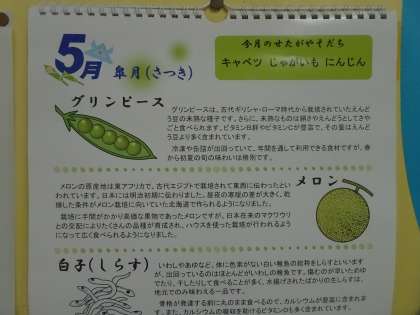 5月 皐月(さつき)
今月のせたがやそだち
キャベツ じゃがいも にんじん
グリンピース
グリンピースは、古代ギリシャ・ローマ時代から栽培されていたえんど
う豆の未熟な種子です。さらに、未熟なものは絹さやえんどうとしてさや
ごと食べられます。ビタミンB群やビタミンCが豊富で、その量はえんど
う豆から引き継がれています。
冷凍や缶詰が出回っていて、年間を通して利用できる食材ですが、春
から初夏の旬の味わいは格別です。
メロン
メロンの原産地は東アフリカで、古代エジプトで栽培されて東西に伝わったとい
われています。日本には明治初期に伝わりました。昼夜の寒暖の差が大きく、乾
燥した条件がメロン栽培に向いていた北海道で作られるようになりました。
栽培に手間がかかり高価な果物であったメロンですが、日本在来のマクワウリ
との交配によりたくさんの品種が育成され、ハウスを使った栽培が行われるように
なって広く食べられるようになりました。
白子(しらす)
いわしやあゆなど、体に色素がない白い稚魚の総称をしらすといいます
が、出回っているのはほとんどがいわしの稚魚です。傷むのが早いためゆ
でたり、干したりして食べることが多く、水揚げされたばかりの生しらすは、
地元でのみ味わえる一品です。
骨格が発達する前に丸のまま食べるので、カルシウムが豊富に含まれま
す。また、カルシウムの吸収を助けるビタミンDも多く含まれています。